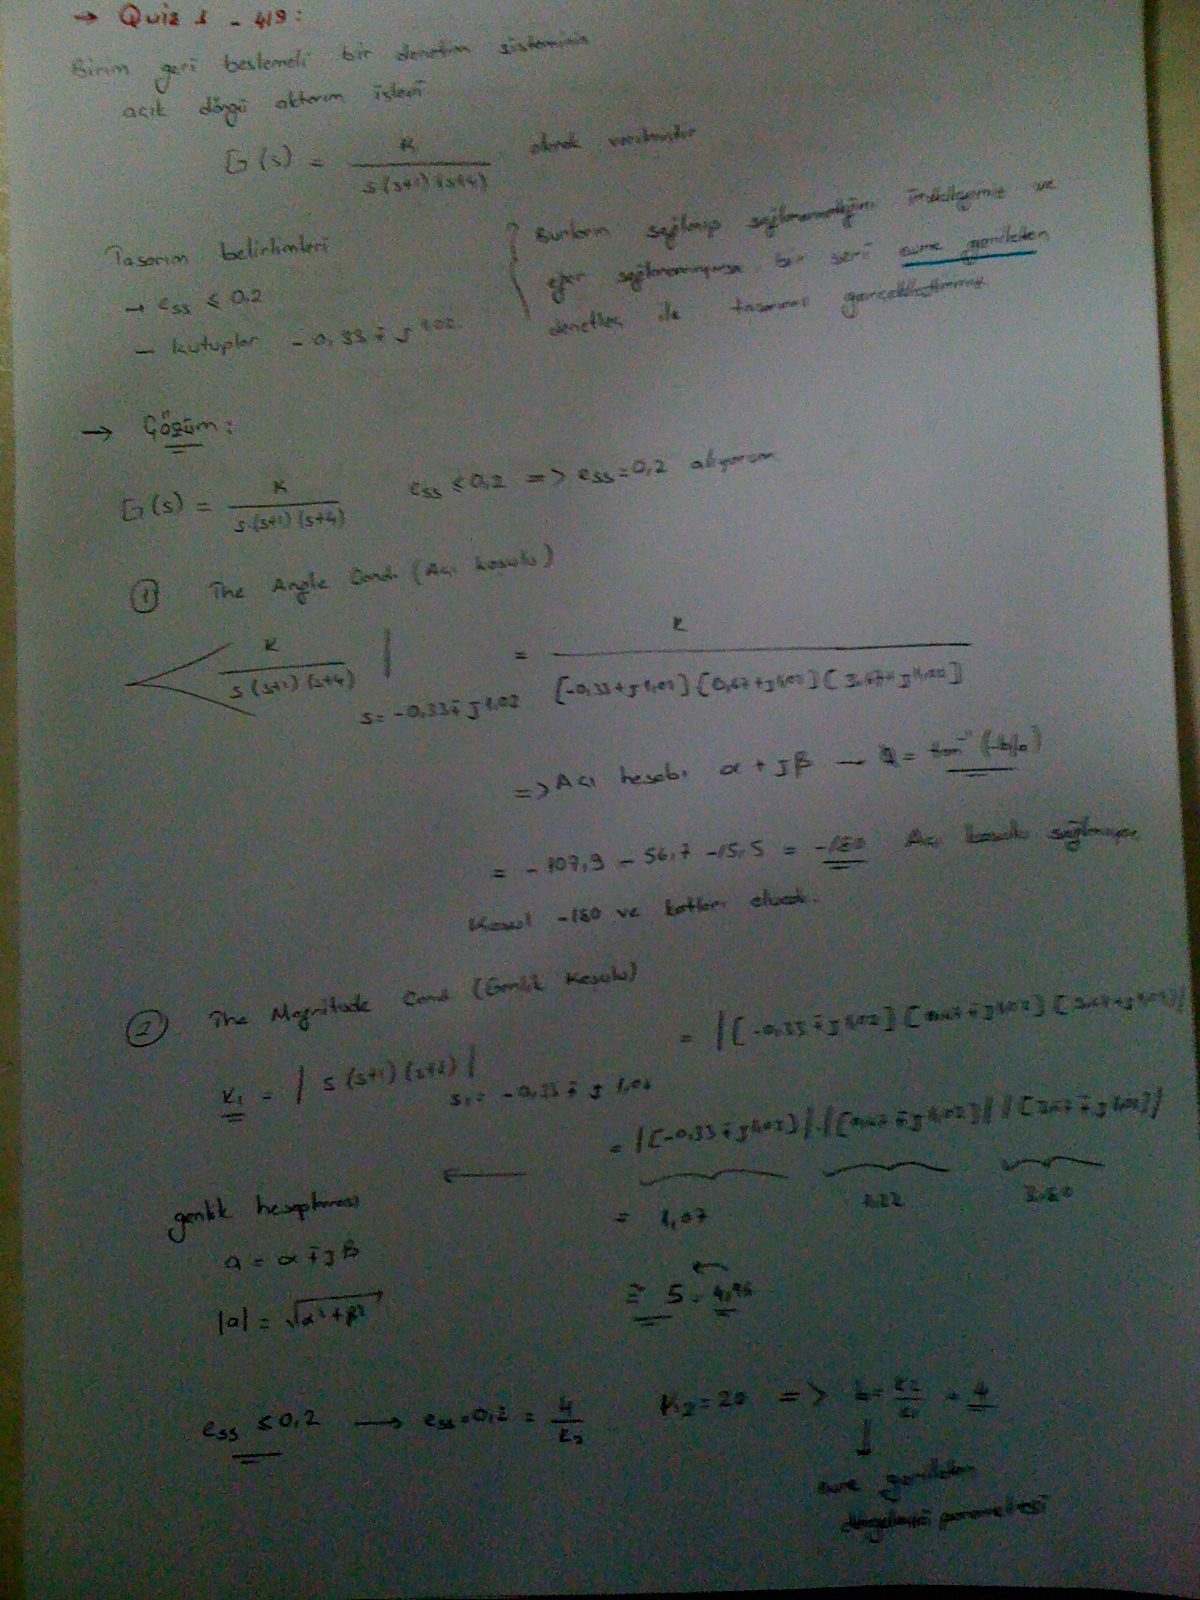 → Quiz 1 - 419:
Birim geri beslemeli bir denetim sisteminin
açık döngü aktarım işlevi
G(s) = K / s(s+1)(s+4) olarak verilmiştir
Tasarım belirtimleri
→ ess ≤ 0,2
- kutuplar -0,33 ∓ j 1,02.
Bunların sağlanıp sağlanmadığını inceleyiniz ve
eğer sağlanmıyorsa bir seri
denetleç ile tasarımı gerçekleştiriniz.
→ Çözüm:
G(s) = K / s.(s+1)(s+4) ess ≤ 0,2 => ess = 0,2 alıyorum
① The Angle Cond. (Açı koşulu)
K / s(s+1)(s+4) | s = -0,33 ∓ j 1,02 = K / [-0,33+j1,02][0,67+j1,02][3,67+j1,02]
=> Açı hesabı α + jβ →
= -107,9 - 56,7 - 15,5 = -180 Açı koşulu
Koşul -180 ve katları olacak.
② The Magnitude Cond (Genlik Koşulu)
K₁ = | s(s+1)(s+4) | s₁ = -0,33 ∓ j 1,02 = |[-0,33 ∓ j1,02][0,67 ∓ j1,02][3,67 ∓ j1,02]|
= |[-0,33 ∓ j1,02]|.|[0,67 ∓ j1,02]||[3,67 ∓ j1,02]|
genlik hesaplaması
= 1,07 1.22 3.80
a = α ∓ jβ
≅ 5 4,96
|a| = √α²+β²
ess ≤ 0,2 → ess = 0,2 = 4/K₂ K₂ = 20 => K₂/K₁ = 4
parametresi